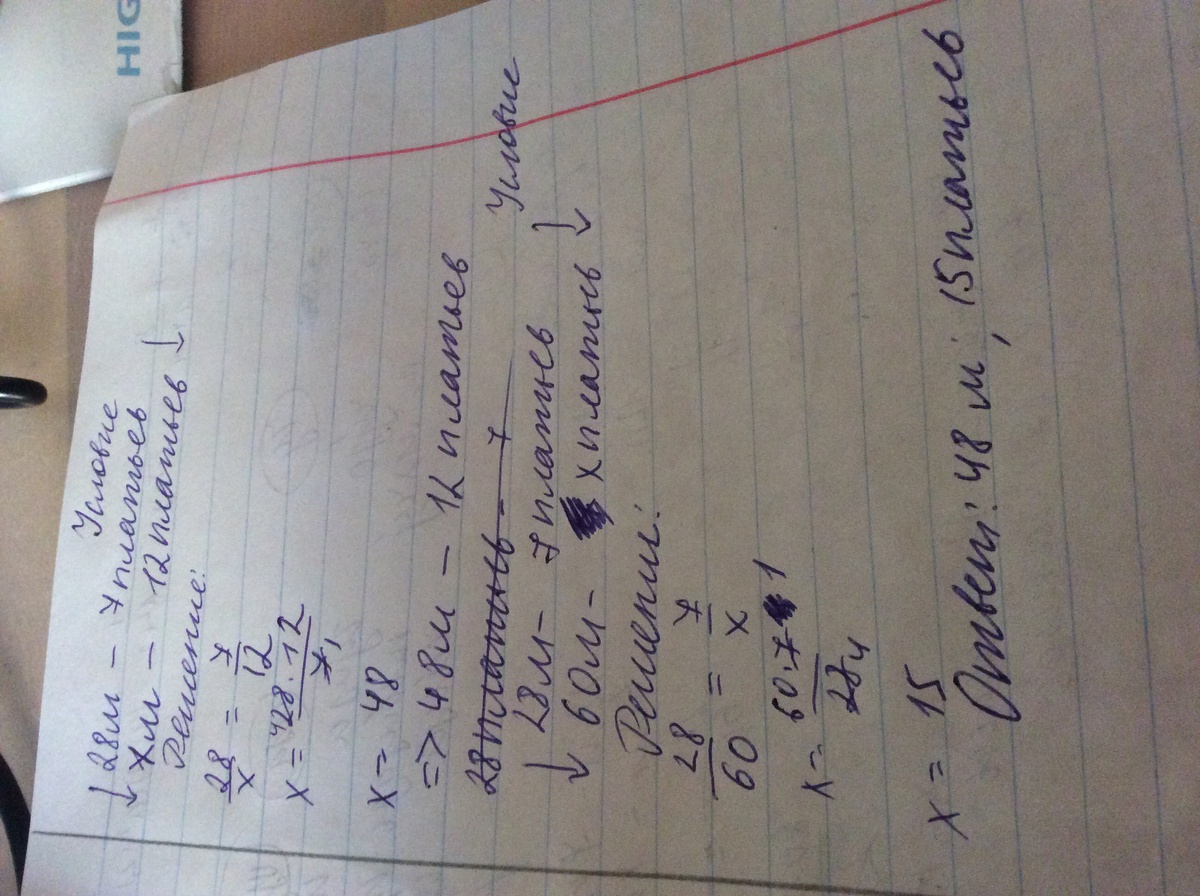 HIG
Условие
↓ 28м – 7 платьев
хм – 12 платьев ↓
Решение:
28/х = 7/12
х = ⁴28·12/7₁
х = 48
=> 48м – 12 платьев
28 платьев – 7
Условие
↓ 28м – 7 платьев ↓
60м – х платьев
Решение:
28/60 = 7/х
х = 60·7 1/28 4
х = 15
Ответ: 48 м; 15 платьев